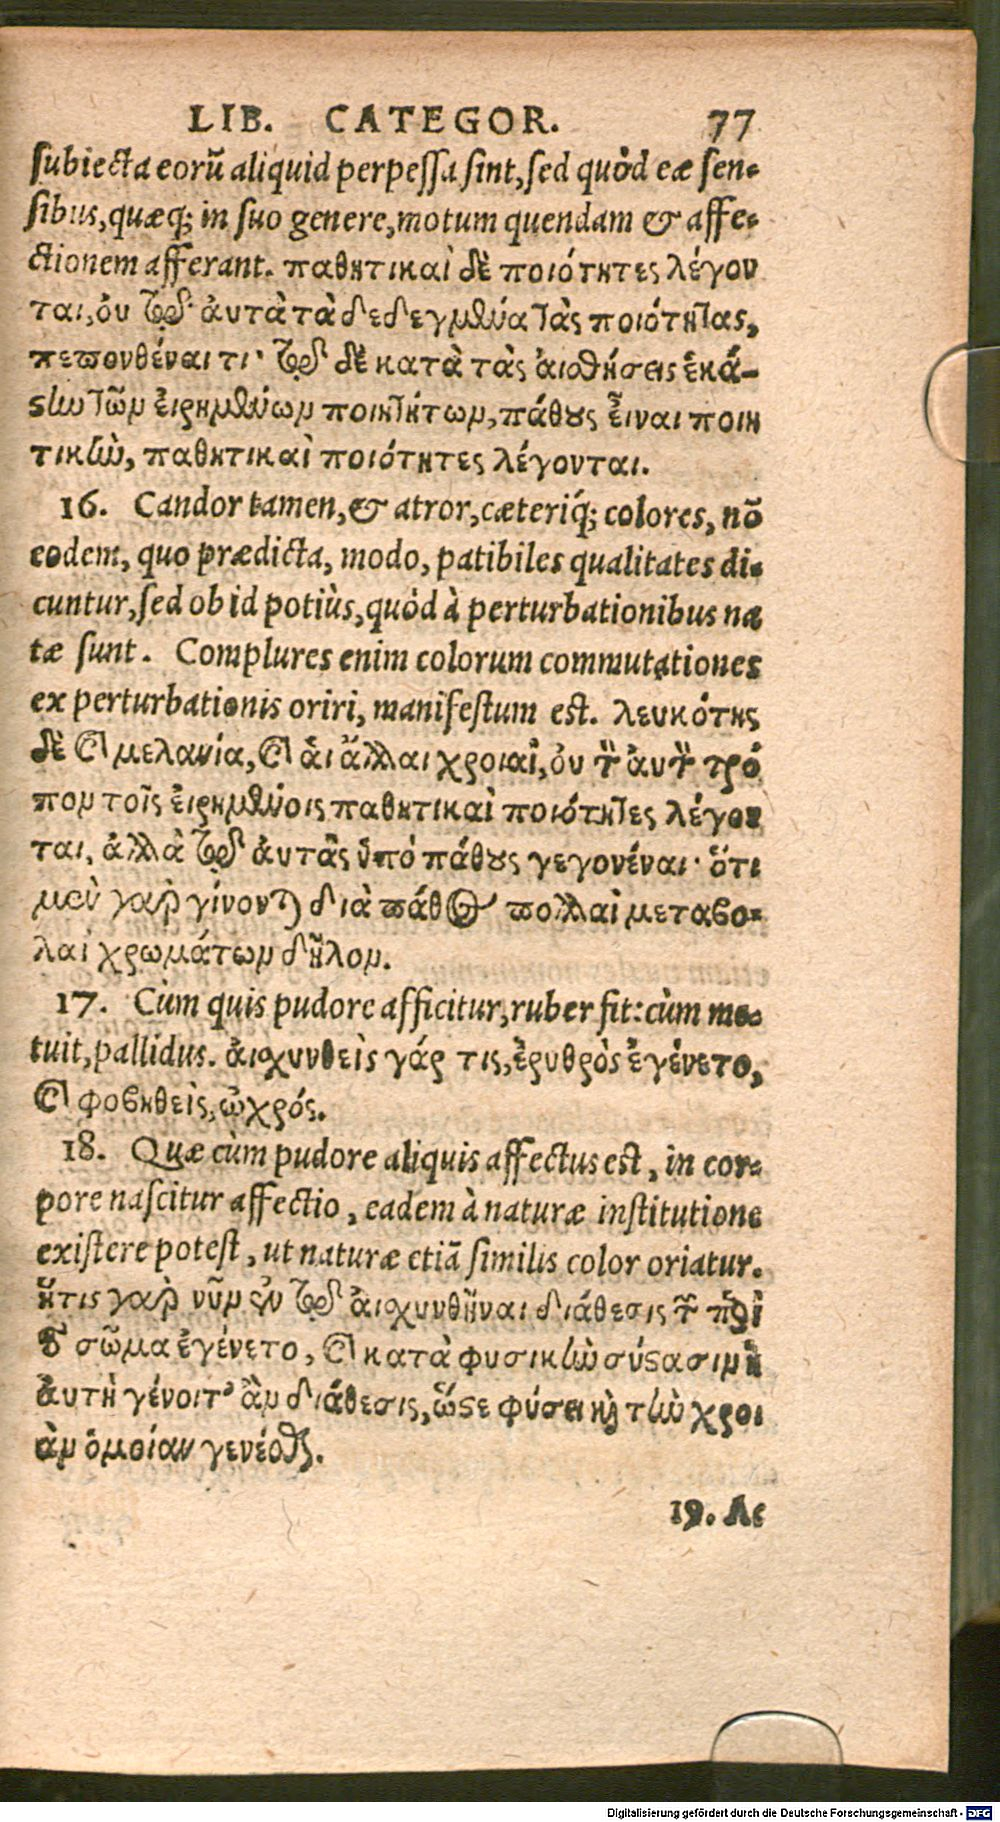 LIB. CATEGOR. 77
subiecta eorũ aliquid perpessa sint, sed quòd eæ sen-
sibus, quæq; in suo genere, motum quendam & affe-
ctionem afferant. παθητικαὶ δὲ ποιότητες λέγον
ται, ὀυ τῷ ἀυτὰ τὰ δεδεγμένα τὰς ποιότητας,
πεπονθέναι τι· τῷ δὲ κατὰ τὰς ἀισθήσεις ἑκά-
στην τῶν ἐιρημένων ποιητήτων, πάθους ἐ͂ιναι ποιη
τικὴν, παθητικαὶ ποιότητες λέγονται.
16. Candor tamen, & atror, cæteriq́; colores, nõ
eodem, quo prædicta, modo, patibiles qualitates di-
cuntur, sed ob id potiùs, quòd à perturbationibus na
tæ sunt. Complures enim colorum commutationes
ex perturbationis oriri, manifestum est. λευκότης
δὲ καὶ μελανία, καὶ ἁι ἄλλαι χροιαὶ, ὀυ τὸν ἀυτὸν τρό
πον τοῖς ἐιρημένοις παθητικαὶ ποιότητες λέγον
ται, ἀλλὰ τῷ ἀυτὰς ὑπό πάθους γεγονέναι· ὅτι
μὲν γὰρ γίνονται διὰ πάθος πολλαὶ μεταβο-
λαὶ χρωμάτων δῆλον.
17. Cùm quis pudore afficitur, ruber fit: cùm me-
tuit, pallidus. ἀισχυνθεὶς γάρ τις, ἐρυθρὸς ἐγένετο,
καὶ φοβηθεὶς, ὠχρός.
18. Quæ cùm pudore aliquis affectus est, in cor-
pore nascitur affectio, eadem à naturæ institutione
existere potest, ut naturæ etiã similis color oriatur.
ἥτις γὰρ νῦν ἐν τῷ ἀισχυνθῆναι διάθεσις τῶν περὶ
τὸ σῶμα ἐγένετο, καὶ κατὰ φυσικὴν σύστασιν ἡ
ἀυτὴ γένοιτ' ἂν διάθεσις, ὥστε φύσει καὶ τὴν χροι
ὰν ὁμοίαν γενέσθαι.
19. Ac
Digitalisierung gefördert durch die Deutsche Forschungsgemeinschaft - DFG